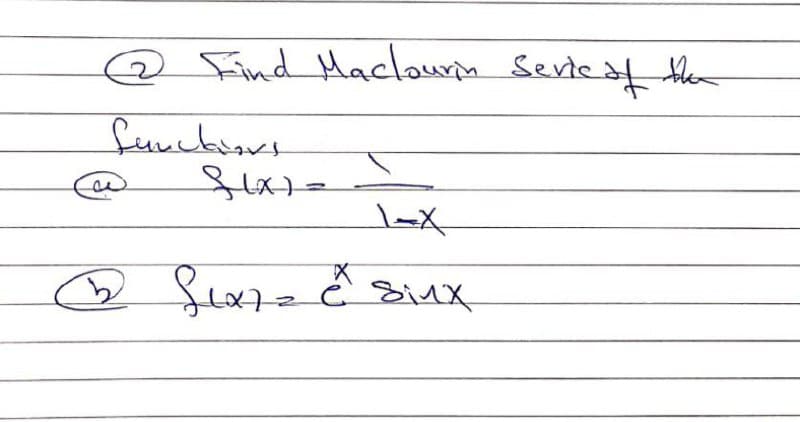 ② Find Maclourin Serie of the
functions
ⓐ f(x) = 1/1-x
ⓑ f(x) = e^x sinx